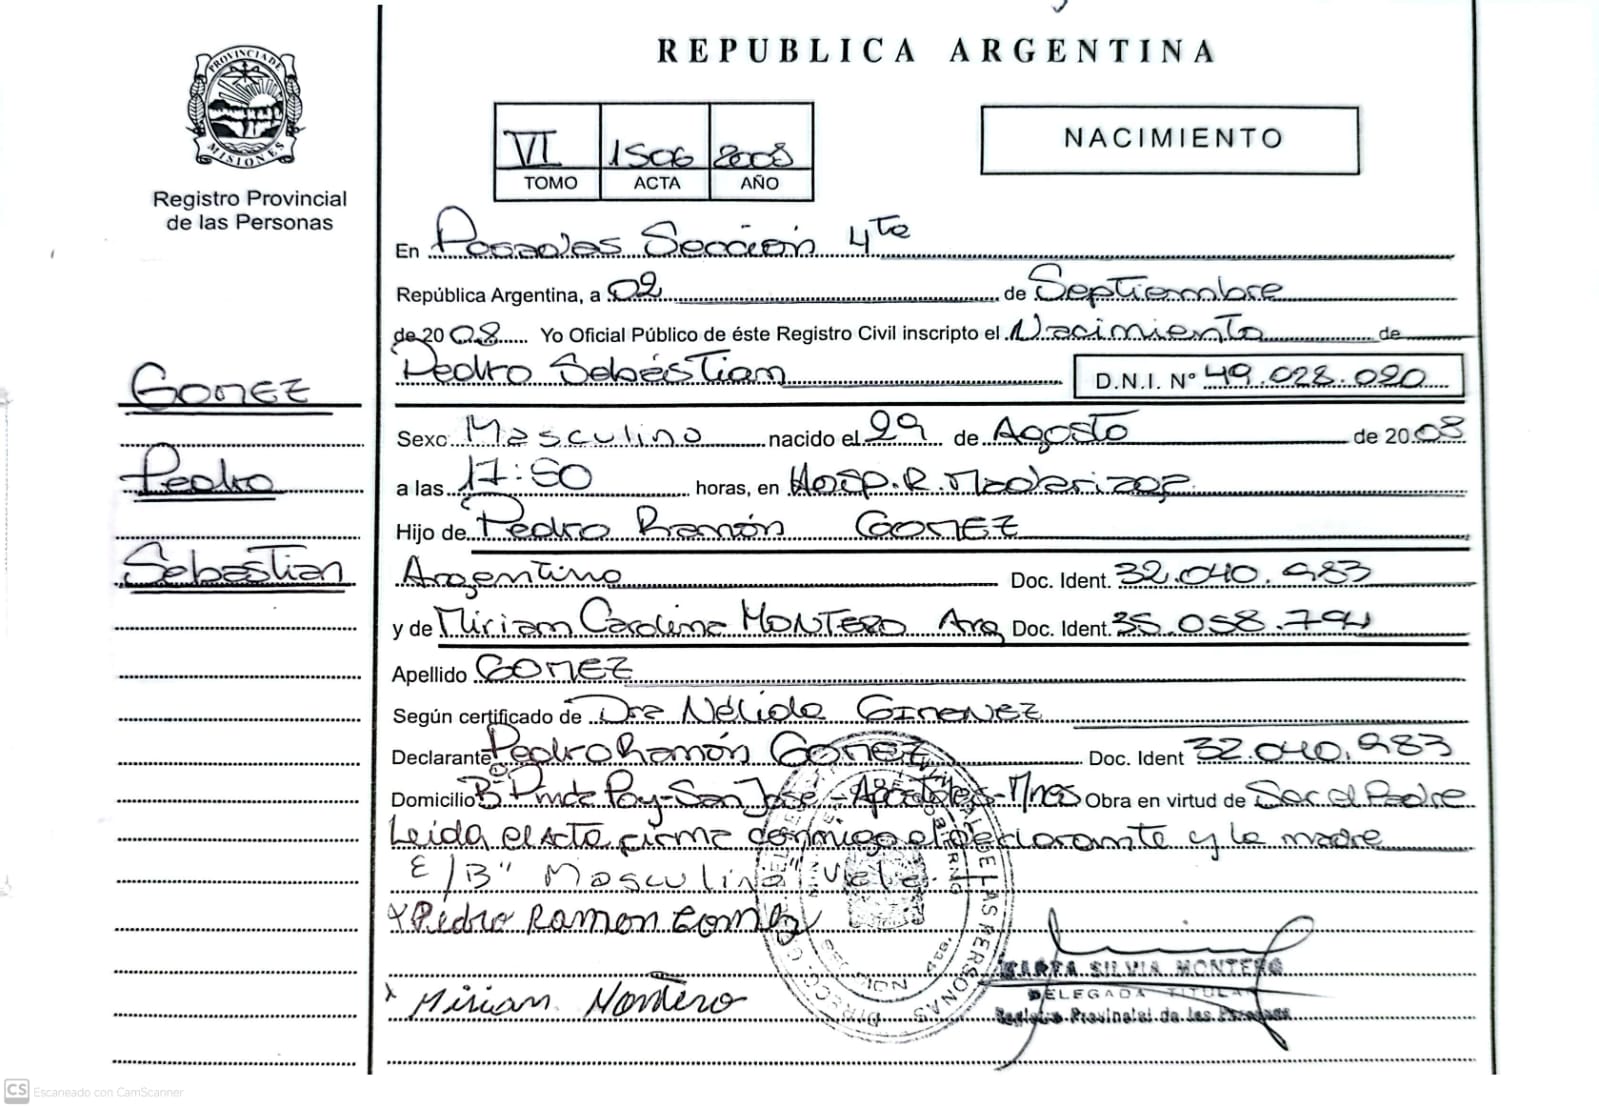 REPUBLICA ARGENTINA
PROVINCIA DE
MISIONES
Registro Provincial
de las Personas
VI 1506 2008
TOMO ACTA AÑO
NACIMIENTO
En Posadas Sección 4ta
República Argentina, a 02 de Septiembre
de 2008 Yo Oficial Público de éste Registro Civil inscripto el Nacimiento de
Pedro Sebastian D.N.I. Nº 49.028.020
GOMEZ
Pedro
Sebastian
Sexo Masculino nacido el 29 de Agosto de 2008
a las 17:50 horas, en Hosp. R. Madariaga
Hijo de Pedro Ramón GOMEZ
Argentino Doc. Ident. 32.040.983
y de Miriam Carolina MONTERO Arg Doc. Ident. 35.058.794
Apellido GOMEZ
Según certificado de Dra Nélida GIMENEZ
Declarante Pedro Ramón GOMEZ Doc. Ident 32.040.983
Domicilio Bº Pindo Poy-San José-Apóstoles-Mnes Obra en virtud de Ser el Padre
Leida el acta firma conmigo el declarante y la madre
E/B" Masculino" Vale.
x Pedro Ramon Gomez
x Miriam Montero
MARTA SILVIA MONTERO
DELEGADA TITULAR
Registro Provincial de las Personas
CS Escaneado con CamScanner